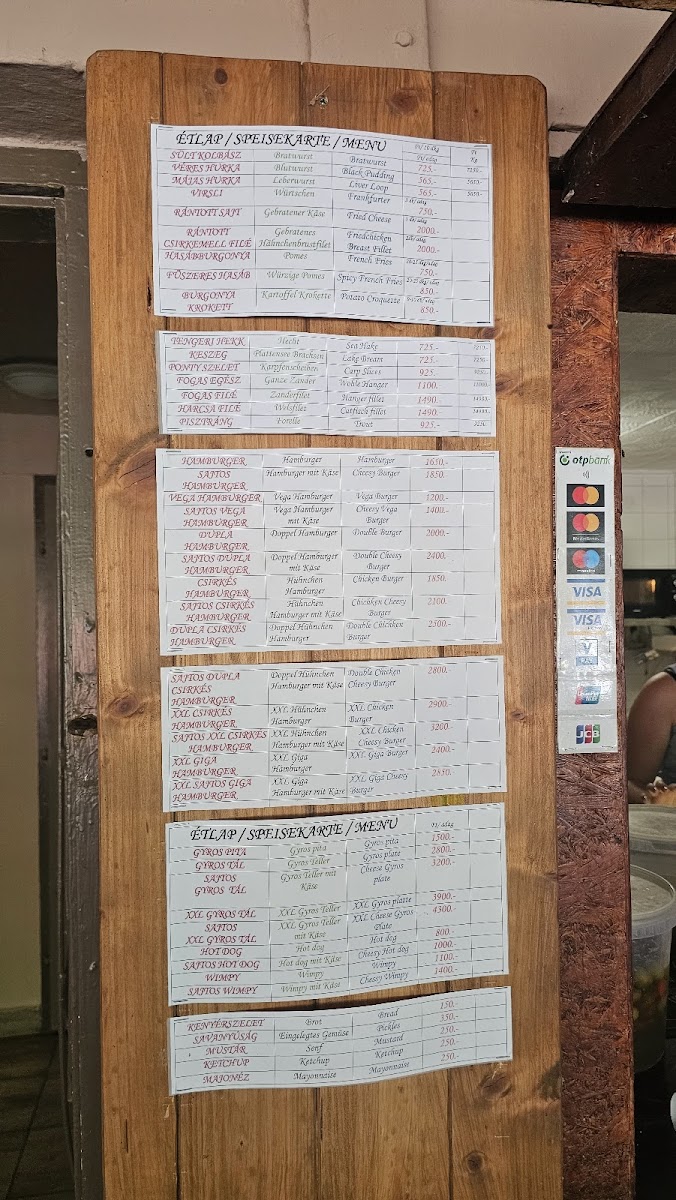 ÉTLAP / SPEISEKARTE / MENU
SÜLT KOLBÁSZ Bratwurst Bratwurst 725.- 7250.-
VÉRES HURKA Blutwurst Black Pudding 565.- 5650.-
MÁJAS HURKA Leberwurst Liver Loop 565.- 5650.-
VIRSLI Würtschen Frankfurter 750.-
RÁNTOTT SAJT Gebratener Käse Fried Cheese 2000.-
RÁNTOTT Gebratenes Friedchicken
CSIRKEMELL FILÉ Hähnchenbrustfilet Breast Fillet 2000.-
HASÁBBURGONYA Pomes French Fries 750.-
FŰSZERES HASÁB Würzige Pomes Spicy French Fries 850.-
BURGONYA Kartoffel Krokette Potato Croquette 850.-
KROKETT
TENGERI HEKK Hecht Sea Hake 725.- 7250.-
KESZEG Plattensee Brachsen Lake Bream 725.- 7250.-
PONTY SZELET Karpfenscheiben Carp Slices 925.- 9250.-
FOGAS EGÉSZ Ganze Zander Whole Hanger 1100.
FOGAS FILÉ Zanderfilet Hanger fillet 1490.-
HARCSA FILÉ Welsfilet Catfisch fillet 1490.-
PISZTRÁNG Forelle Trout 925.- 9250.-
HAMBURGER Hamburger Hamburger 1650.-
SAJTOS Hamburger mit Käse Cheesy Burger 1850.
HAMBURGER
VEGA HAMBURGER Vega Hamburger Vega Burger 1200.-
SAJTOS VEGA Vega Hamburger Cheesy Vega 1400.-
HAMBURGER mit Käse Burger
DUPLA Doppel Hamburger Double Burger 2000.-
HAMBURGER
SAJTOS DUPLA Doppel Hamburger Double Cheesy 2400.
HAMBURGER mit Käse Burger
CSIRKÉS Hühnchen Chicken Burger 1850.
HAMBURGER Hamburger
SAJTOS CSIRKÉS Hühnchen Chichken Cheesy 2100.
HAMBURGER Hamburger mit Käse Burger
DUPLA CSIRKÉS Doppel Hühnchen Double Chicken 2500.-
HAMBURGER Hamburger Burger
SAJTOS DUPLA Doppel Hühnchen Double Chicken 2800.-
CSIRKÉS Hamburger mit Käse Cheesy Burger
HAMBURGER
XXL CSIRKÉS XXL Hühnchen XXL Chicken 2900.-
HAMBURGER Hamburger Burger
SAJTOS XXL CSIRKÉS XXL Hühnchen XXL Chicken 3200.-
HAMBURGER Hamburger mit Käse Cheesy Burger
XXL GIGA XXL Giga XXL Giga Burger 2400.-
HAMBURGER Hamburger
XXL SAJTOS GIGA XXL Giga XXL Giga Cheesy 2850.-
HAMBURGER Hamburger mit Käse Burger
ÉTLAP / SPEISEKARTE / MENU Ft/ adag
GYROS PITA Gyros pita Gyros pita 1500.-
GYROS TÁL Gyros Teller Gyros plate 2800.-
SAJTOS Gyros Teller mit Cheese Gyros 3200.-
GYROS TÁL Käse plate
XXL GYROS TÁL XXL Gyros Teller XXL Gyros platte 3900.-
SAJTOS XXL Gyros Teller XXL Cheese Gyros 4300.-
XXL GYROS TÁL mit Käse Plate
HOT DOG Hot dog Hot dog 800.-
SAJTOS HOT DOG Hot dog mit Käse Cheesy Hot dog 1000.-
WIMPY Wimpy Wimpy 1100.-
SAJTOS WIMPY Wimpy mit Käse Chessy Wimpy 1400.-
KENYÉRSZELET Brot Bread 150.-
SAVANYÚSÁG Eingelegtes Gemüse Pickles 350.-
MUSTÁR Senf Mustard 250.-
KETCHUP Ketchup Ketchup 250.-
MAJONÉZ Mayonnaise Mayonnaise 250.-
otpbank
VISA
VISA
V
UnionPay
JCB